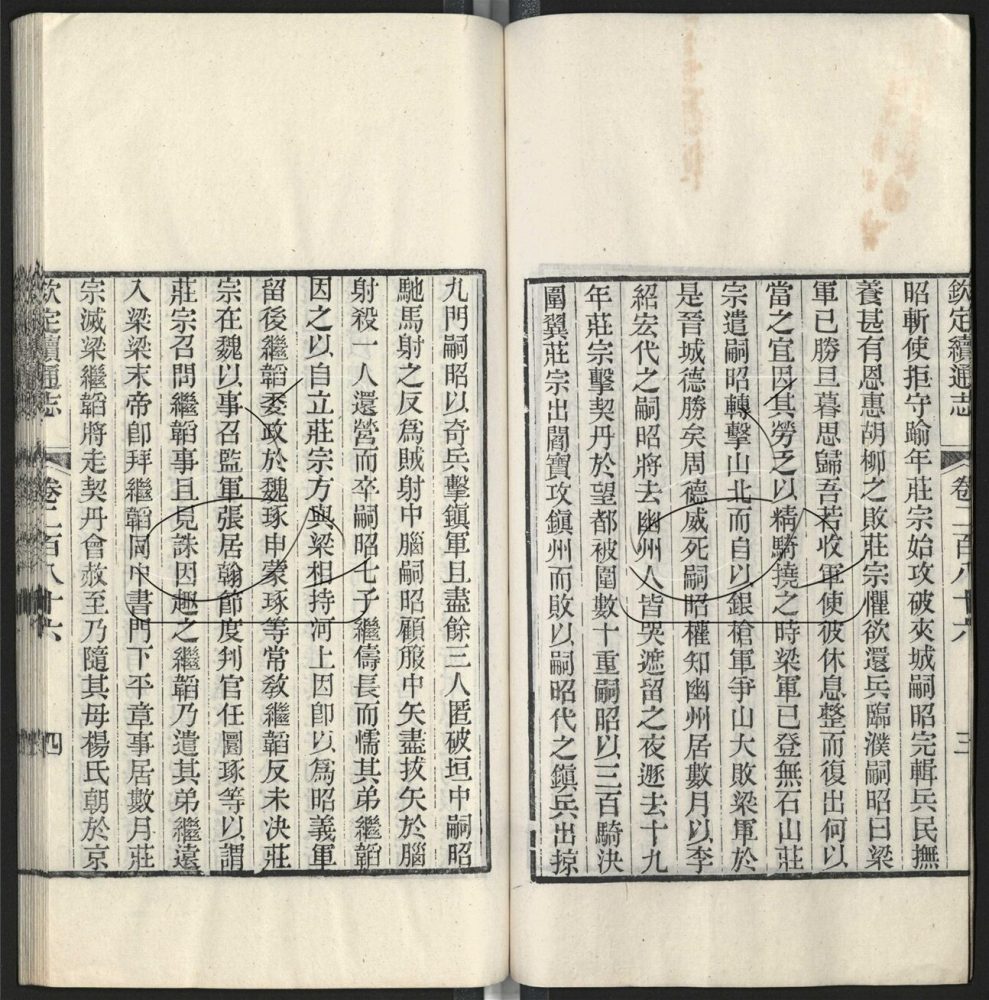 欽定續通志　卷二百八十六　三
昭斬使拒守踰年莊宗始攻破夾城嗣昭完輯兵民撫
養甚有恩惠胡柳之敗莊宗懼欲還兵臨濮嗣昭曰梁
軍已勝旦暮思歸吾若收軍使彼休息整而復出何以
當之宜因其勞乏以精騎撓之時梁軍已登無石山莊
宗遣嗣昭轉擊山北而自以銀槍軍爭山大敗梁軍於
是晉城德勝矣周德威死嗣昭權知幽州居數月以李
紹宏代之嗣昭將去幽州人皆哭遮留之夜遯去十九
年莊宗擊契丹於望都被圍數十重嗣昭以三百騎決
圍翼莊宗出閻寶攻鎮州而敗以嗣昭代之鎮兵出掠
九門嗣昭以奇兵擊鎮軍且盡餘三人匿破垣中嗣昭
馳馬射之反爲賊射中腦嗣昭顧箙中矢盡拔矢於腦
射殺一人還營而卒嗣昭七子繼儔長而懦其弟繼韜
因之以自立莊宗方與梁相持河上因卽以爲昭義軍
留後繼韜委政於魏琢申蒙琢等常敎繼韜反未決莊
宗在魏以事召監軍張居翰節度判官任圜琢等以謂
莊宗召問繼韜事且見誅因趣之繼韜乃遣其弟繼遠
入梁梁末帝卽拜繼韜同中書門下平章事居數月莊
宗滅梁繼韜將走契丹會赦至乃隨其母楊氏朝於京
欽定續通志　卷二百八十六　四